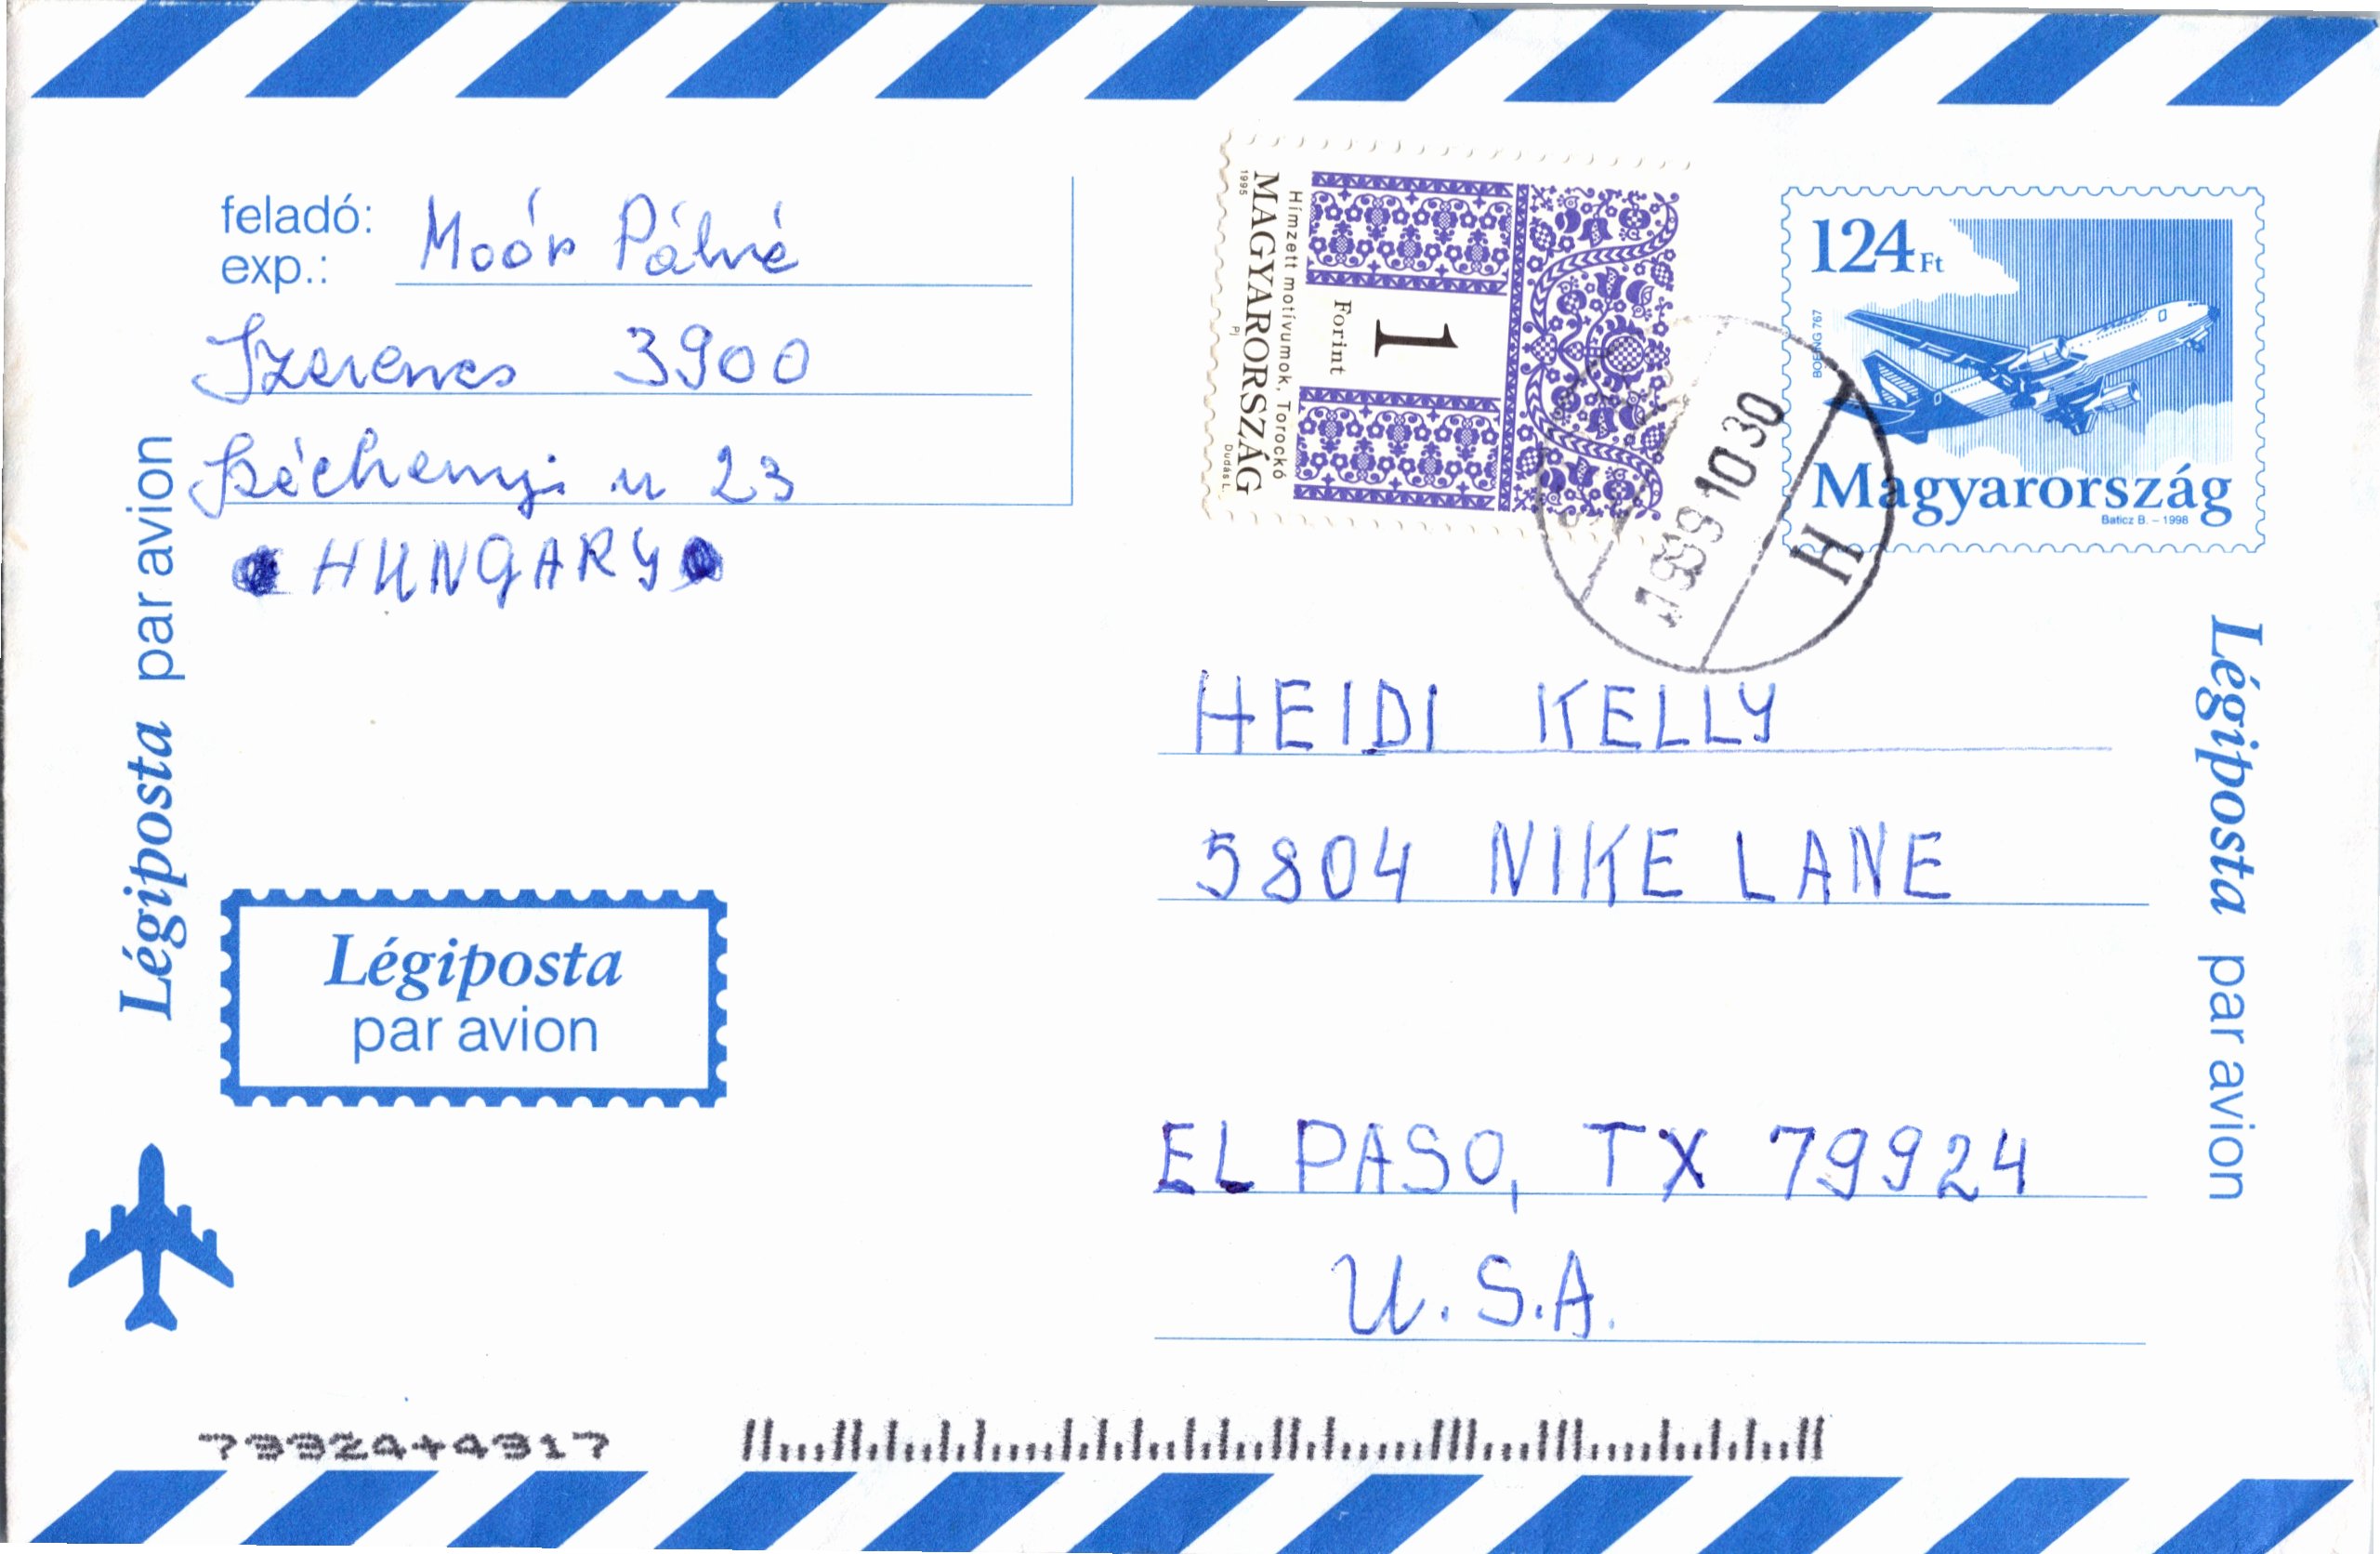 feladó:
exp.:
Moór Pálné
Szerencs 3900
Széchenyi u 23
HUNGARY
Légiposta par avion
Légiposta
par avion
1995
MAGYARORSZÁG
Pj
Dudás L.
Hímzett motívumok, Torockó
1
Forint
1999 10 30
H
124 Ft
BOEING 767
Magyarország
Baticz B. – 1998
HEIDI KELLY
5804 NIKE LANE
EL PASO, TX 79924
U.S.A.
Légiposta par avion
79924+4317